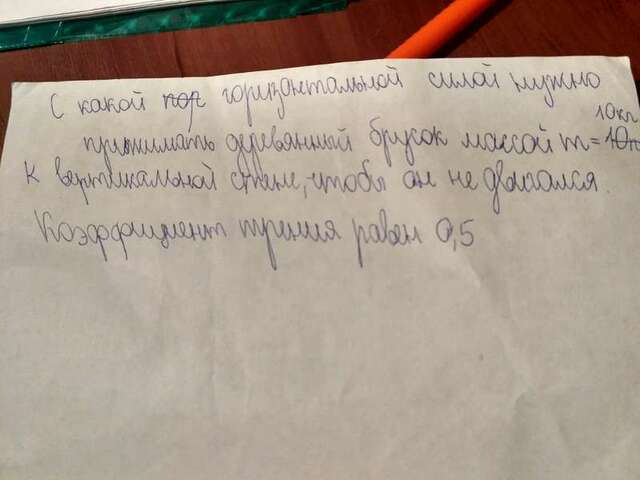 С какой гор горизонтальной силой нужно
прижимать деревянный брусок массой m = 10кг
к вертикальной стене, чтобы он не двигался.
Коэффициент трения равен 0,5